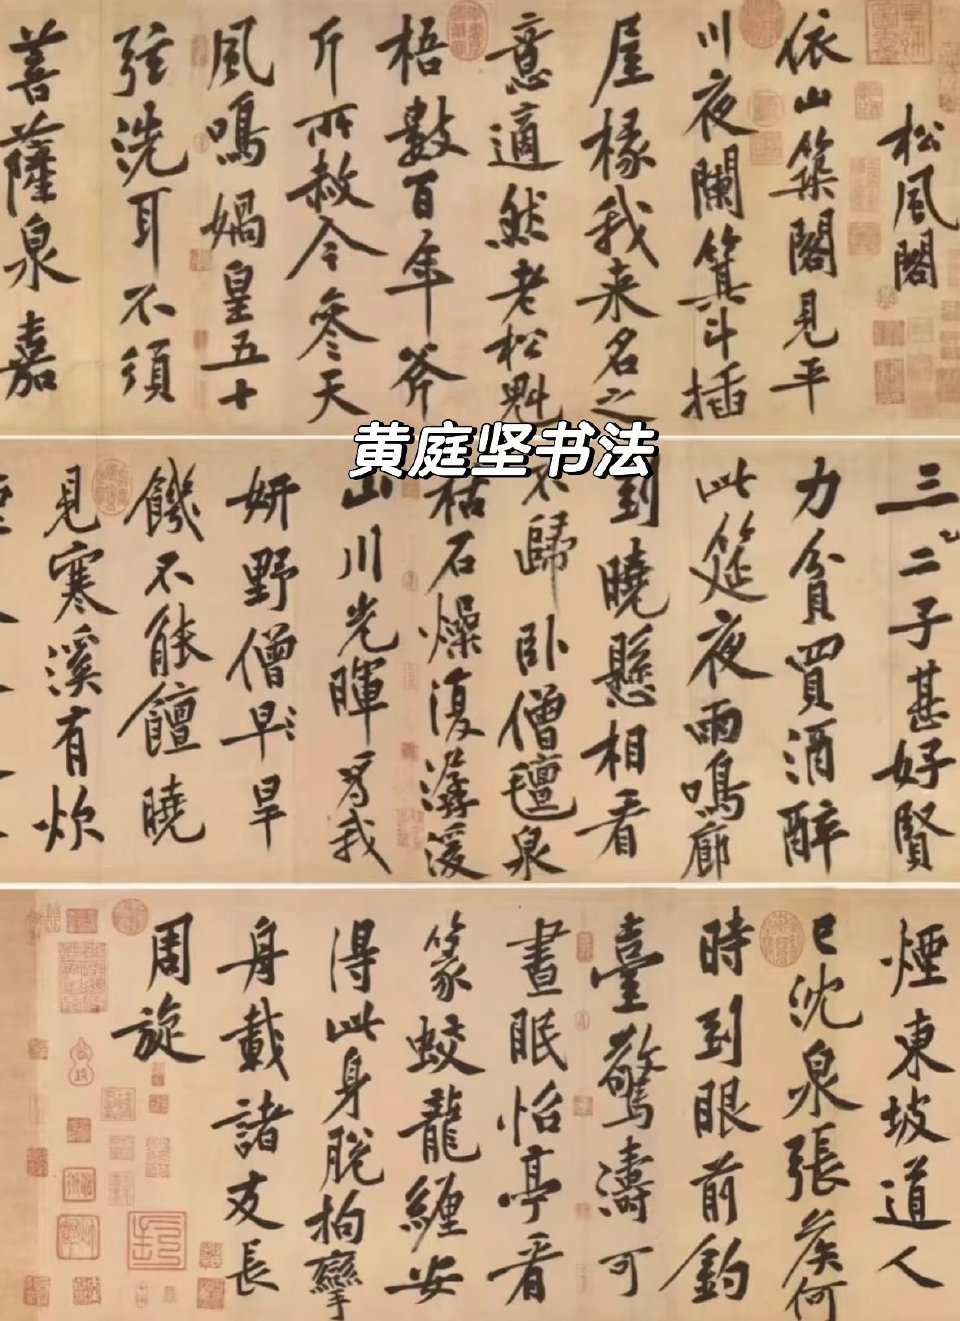 松風閣
依山築閣見平
川夜闌箕斗插
屋椽我来名之
意適然老松魁
梧數百年斧
斤所赦今參天
風鳴媧皇五十
弦洗耳不須
菩薩泉嘉
黄庭坚书法
三二子甚好賢
力貧買酒醉
此筵夜雨鳴廊
到曉懸相看
不歸卧僧氈泉
枯石燥復潺湲
山川光暉為我
妍野僧早旱
饑不能饘曉
見寒溪有炊
煙東坡道人
已沈泉張侯何
時到眼前釣
臺驚濤可
晝眠怡亭看
篆蛟龍纏安
得此身脫拘攣
舟載諸友長
周旋